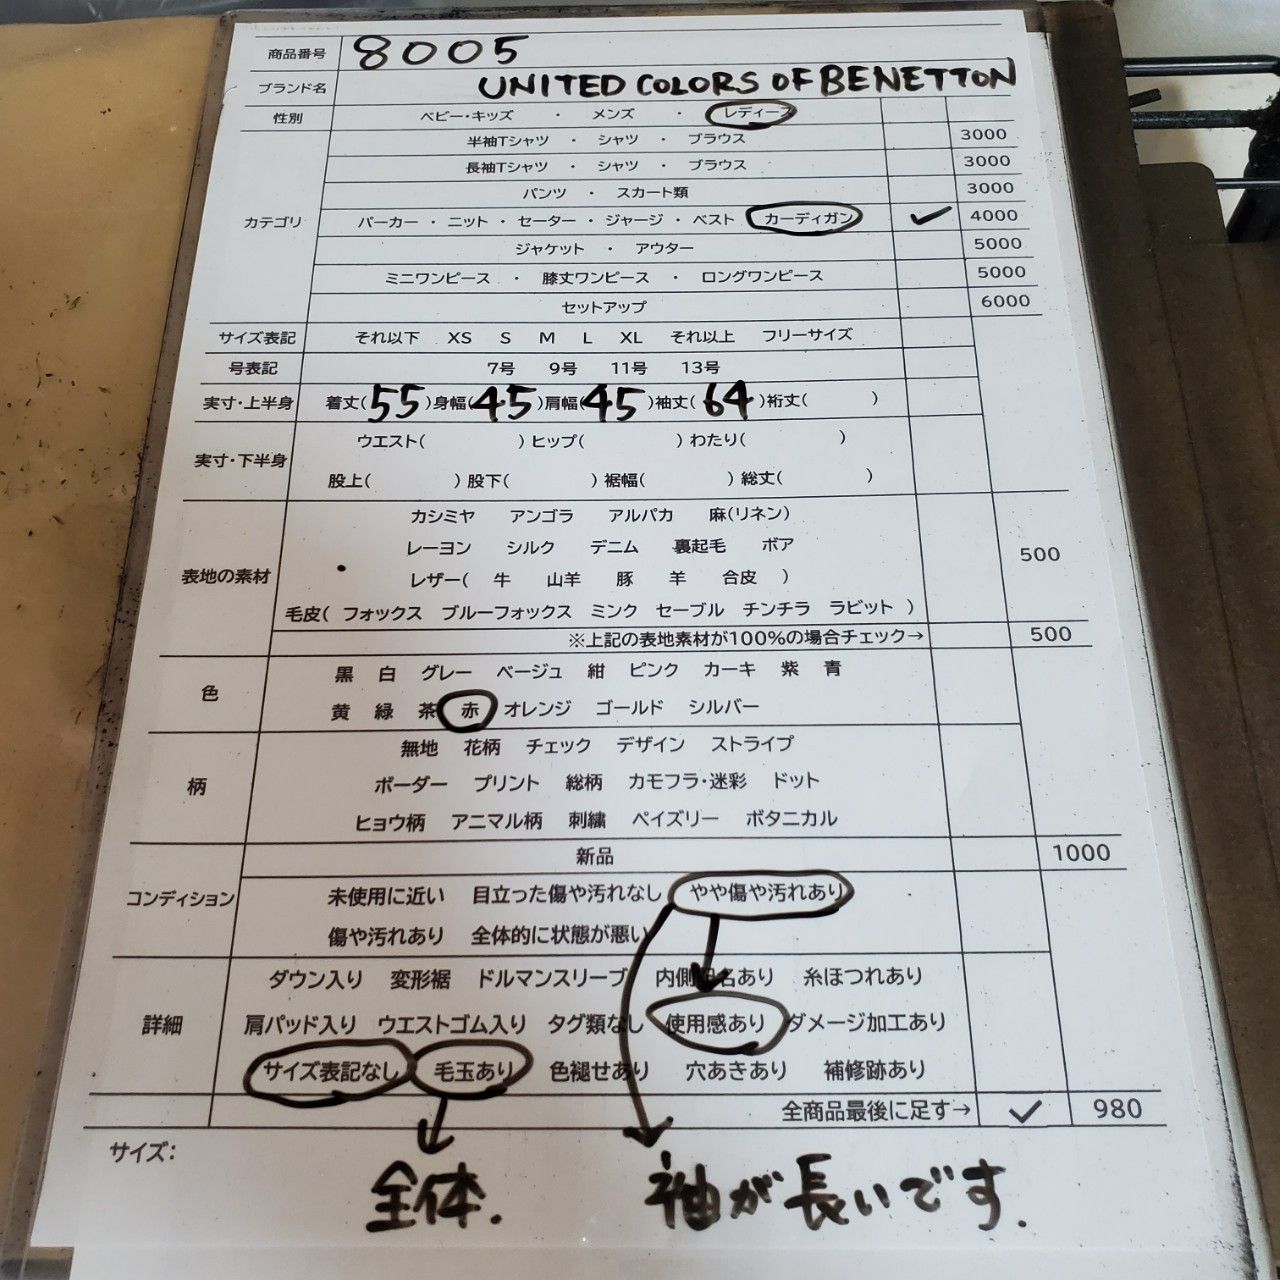 商品番号 8005
ブランド名 UNITED COLORS OF BENETTON
性別 ベビー・キッズ ・ メンズ ・ レディース
半袖Tシャツ ・ シャツ ・ ブラウス 3000
長袖Tシャツ ・ シャツ ・ ブラウス 3000
パンツ ・ スカート類 3000
カテゴリ パーカー ・ ニット ・ セーター ・ ジャージ ・ ベスト カーディガン ✓ 4000
ジャケット ・ アウター 5000
ミニワンピース ・ 膝丈ワンピース ・ ロングワンピース 5000
セットアップ 6000
サイズ表記 それ以下 XS S M L XL それ以上 フリーサイズ
号表記 7号 9号 11号 13号
実寸・上半身 着丈(55)身幅(45)肩幅(45)袖丈(64)裄丈( )
実寸・下半身 ウエスト( )ヒップ( )わたり( )
股上( )股下( )裾幅( )総丈( )
カシミヤ アンゴラ アルパカ 麻(リネン)
レーヨン シルク デニム 裏起毛 ボア 500
表地の素材 レザー( 牛 山羊 豚 羊 合皮 )
毛皮( フォックス ブルーフォックス ミンク セーブル チンチラ ラビット )
※上記の表地素材が100%の場合チェック→ 500
色 黒 白 グレー ベージュ 紺 ピンク カーキ 紫 青
黄 緑 茶 赤 オレンジ ゴールド シルバー
無地 花柄 チェック デザイン ストライプ
柄 ボーダー プリント 総柄 カモフラ・迷彩 ドット
ヒョウ柄 アニマル柄 刺繍 ペイズリー ボタニカル
新品 1000
コンディション 未使用に近い 目立った傷や汚れなし やや傷や汚れあり
傷や汚れあり 全体的に状態が悪い
ダウン入り 変形裾 ドルマンスリーブ 内側記名あり 糸ほつれあり
詳細 肩パッド入り ウエストゴム入り タグ類なし 使用感あり ダメージ加工あり
サイズ表記なし 毛玉あり 色褪せあり 穴あきあり 補修跡あり
全商品最後に足す→ ✓ 980
サイズ：
全体. 袖が長いです.